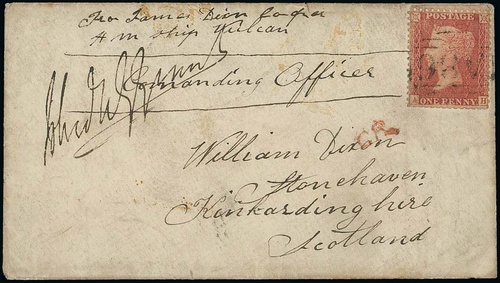 From James Dixon
H M Ship Vulcan
Commanding Officer
POSTAGE
ONE PENNY
A H
William Dixon
Stonehaven
Kinkardinghire
Scotland